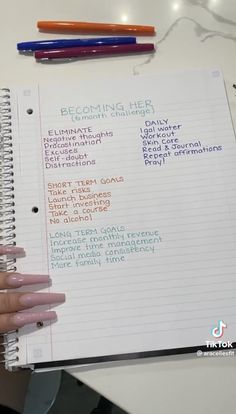 BECOMING HER
(6 month challenge)
ELIMINATE
Negative thoughts
Procastination
Excuses
Self-doubt
Distractions
DAILY
1 gal water
Workout
Skin Care
Read & Journal
Repeat affirmations
Pray!
SHORT TERM GOALS
Take risks
Launch business
Start investing
Take a course
No alcohol
LONG TERM GOALS
Increase monthly revenue
Improve time management
Social media consistency
More family time
TikTok